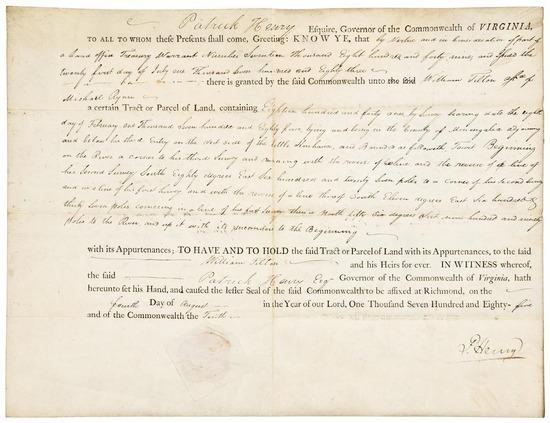 Patrick Henry Esquire, Governor of the Commonwealth of VIRGINIA,
TO ALL TO WHOM these Presents shall come, Greeting: KNOW YE, that by virtue and in consideration of part of
a Land office Treasury Warrant Number Seventeen Thousand Eight hundred and forty nine, and issued the
twenty first day of July one Thousand Seven hundred and Eighty three there is granted by the said Commonwealth unto the said William Tilton
Michael Ryan
a certain Tract or Parcel of Land, containing Eighteen hundred and forty acres by Survey bearing date the eight
day of February one Thousand Seven hundred and Eighty five lying and being in the County of Monongalia adjoining
his third Entry on the west side of the little Kanhawa, and Bounded as followeth Towit Beginning
on the River a corner to his third Survey and running with the reverse of a line of
his Second Survey South Eighty degrees East Six hundred and twenty Seven poles to a corner of his Second Survey
and on a line of his first Survey and with the reverse of a line thereof South Eleven degrees East Six hundred &
thirty Seven poles cornering on a line of his Survey thence North fifty Six degrees West nine hundred and ninety
poles to the River and up it with its meanders to the Beginning
with its Appurtenances; TO HAVE AND TO HOLD the said Tract or Parcel of Land with its Appurtenances, to the said
William Tilton and his Heirs for ever. IN WITNESS whereof,
the said Patrick Henry Esqr Governor of the Commonwealth of Virginia, hath
hereunto set his Hand, and caused the lesser Seal of the said Commonwealth to be affixed at Richmond, on the
fourth Day of August in the Year of our Lord, One Thousand Seven Hundred and Eighty-five
and of the Commonwealth the Tenth
P. Henry